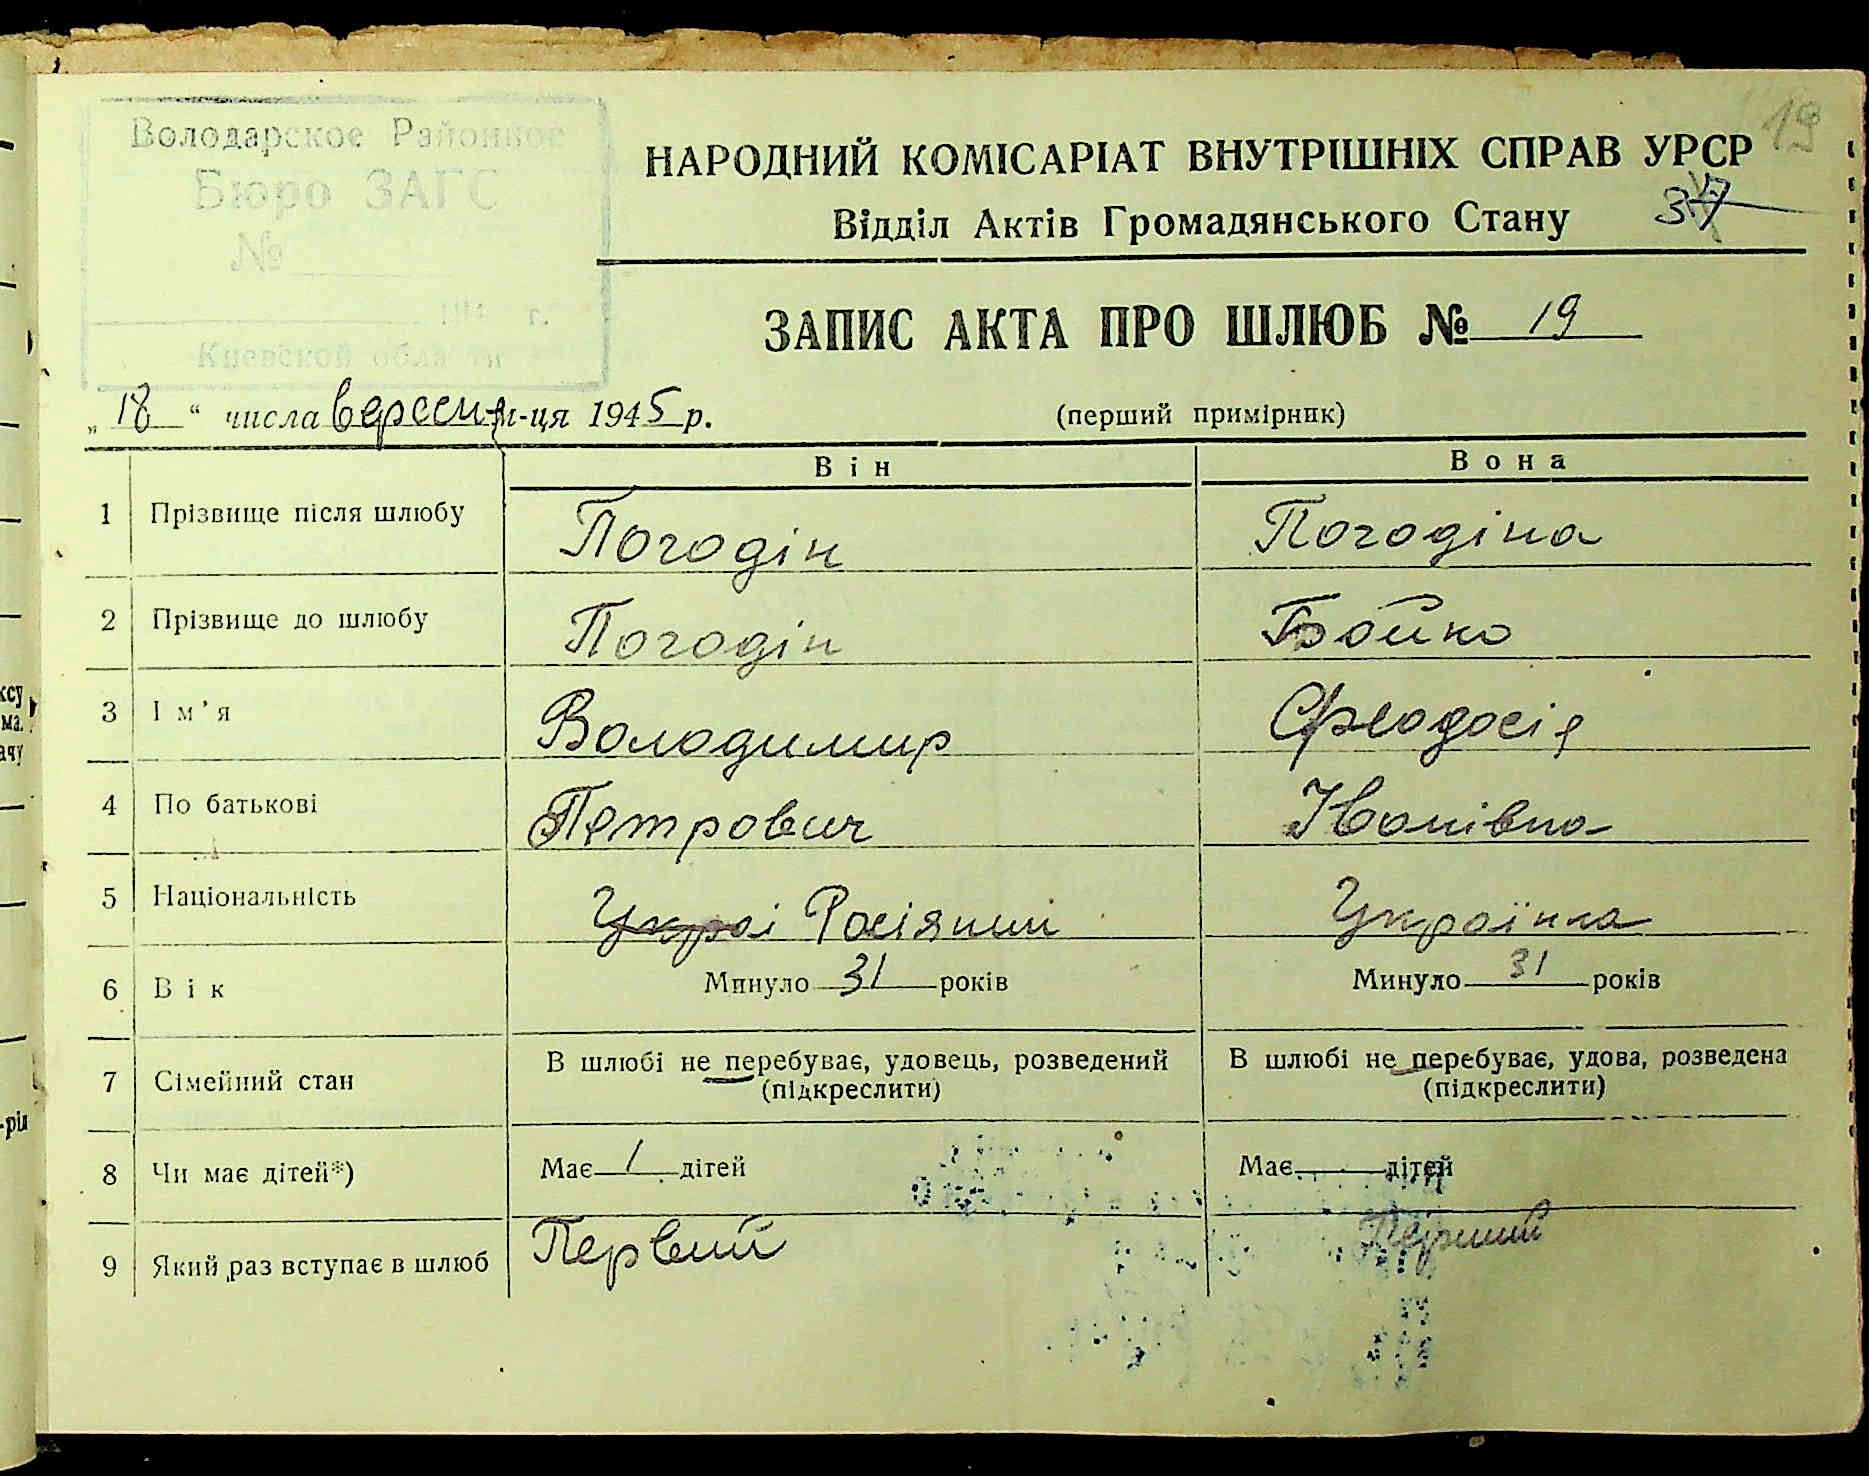 19
Володарское Районное
Бюро ЗАГС
№
194 г.
Киевской области
НАРОДНИЙ КОМІСАРІАТ ВНУТРІШНІХ СПРАВ УРСР
Відділ Актів Громадянського Стану
37
ЗАПИС АКТА ПРО ШЛЮБ № 19
„ 18 “ числа вересня м-ця 1945 р.
(перший примірник)
Він Вона
1 Прізвище після шлюбу Погодін Погодіна
2 Прізвище до шлюбу Погодін Бойко
3 Ім’я Володимир Феодосія
4 По батькові Петрович Іванівна
5 Національність Украі Росіянин Українка
6 Вік Минуло 31 років Минуло 31 років
7 Сімейний стан В шлюбі не перебуває, удовець, розведений В шлюбі не перебуває, удова, розведена
(підкреслити) (підкреслити)
8 Чи має дітей*) Має 1 дітей Має дітей
9 Який раз вступає в шлюб Первий Перший
ксу
ма.
ачу
-ріл